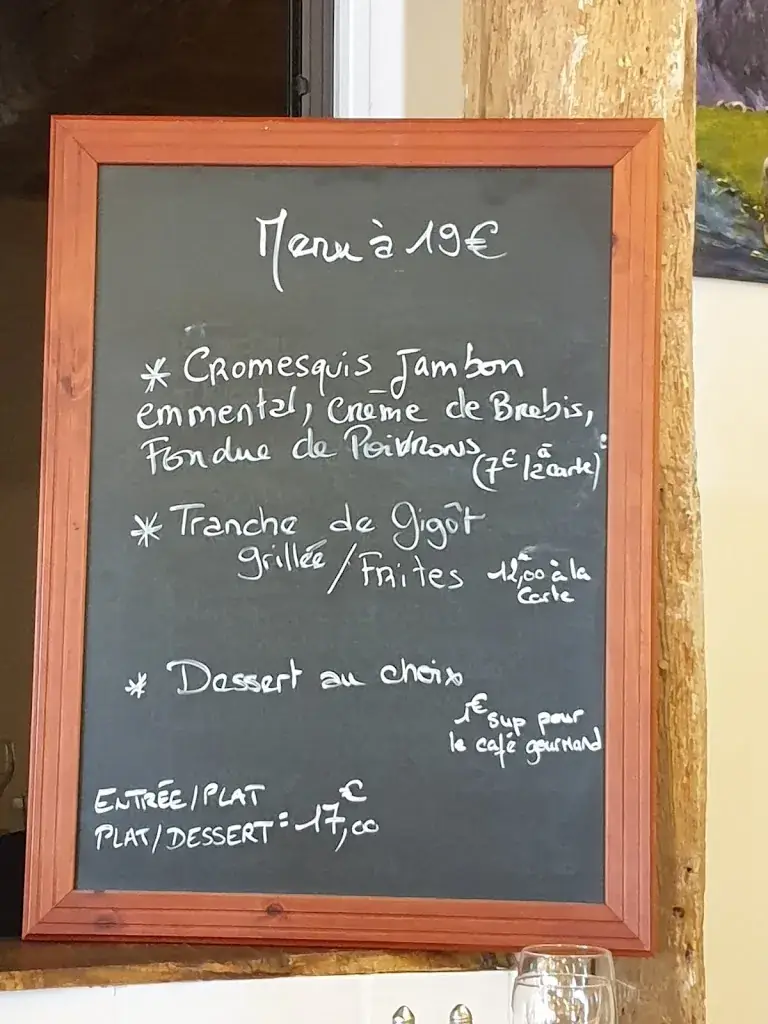 Menu à 19€
* Cromesquis Jambon
emmental, crème de Brebis,
Fondue de Poivrons (7€ à la carte)
* Tranche de gigôt
grillée / Frites 12,00€ à la
Carte
* Dessert au choix
1€ sup pour
le café gourmand
ENTRÉE/PLAT
PLAT/DESSERT = 17,00€